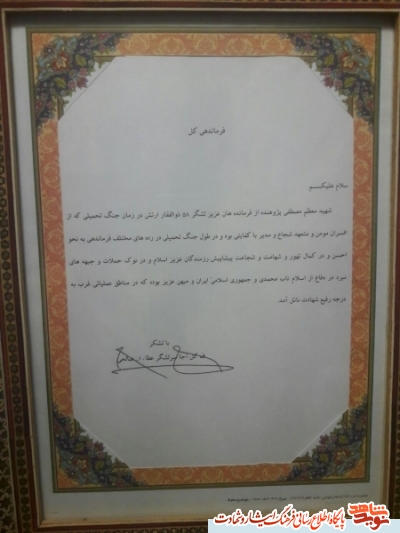 فرماندهی کل
سلام علیکم
شهید معظم مصطفی پژوهنده از فرمانده هان عزیز لشگر ۵۸ ذوالفقار ارتش در زمان جنگ تحمیلی که از
افسران مومن و متعهد شجاع و مدیر با کفایتی بود و در طول جنگ تحمیلی در رده های مختلف فرماندهی به نحو
احسن و در کمال تهور و شهامت و شجاعت پیشاپیش رزمندگان عزیز اسلام و در نوک حملات و جبهه های
نبرد در دفاع از اسلام ناب محمدی و جمهوری اسلامی ایران و میهن عزیز بوده که در مناطق عملیاتی غرب به
درجه رفیع شهادت نائل آمد.
با تشکر
سرلشگر عطاء اله صالحی
نوید شاهد
پایگاه اطلاع رسانی فرهنگ ایثار و شهادت